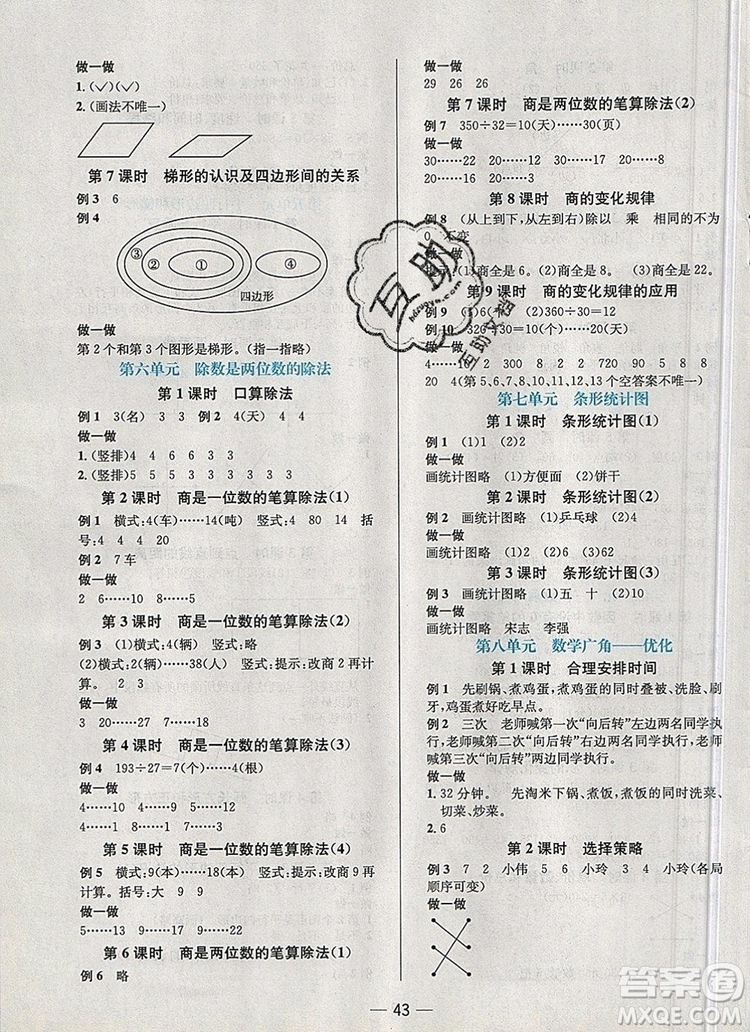 做一做
1. (✓)(✓)
2. (画法不唯一)
第7课时 梯形的认识及四边形间的关系
例3 6
例4
③ ② ① ④
四边形
做一做
第2个和第3个图形是梯形。(指一指略)
第六单元 除数是两位数的除法
第1课时 口算除法
例1 3(名) 3 3 例2 4(天) 4 4
做一做
1. (竖排) 4 4 4 9 9 9
2. (竖排) 5 5 5 3 3 3 3 3 3
第2课时 商是一位数的笔算除法(1)
例1 横式:4(车)……14(吨) 竖式:4 80 14 括
号:4
例2 7车
做一做
2 6……10 5……5 6……10
第3课时 商是一位数的笔算除法(2)
例3 (1)横式:4(辆) 竖式:略
(2)横式:2(辆)……38(人) 竖式:提示:改商2再计
算。 2 3
做一做
3 20……27 7……17 2……18
第4课时 商是一位数的笔算除法(3)
例4 193÷27=7(个)……4(根)
做一做
4……10 4……19 9……2 5……11
8……19 4……20 5……9 9……12
第5课时 商是一位数的笔算除法(4)
例5 横式:9(本)……18(本) 竖式:提示:改商9再
计算。括号:大 9 9
做一做
5……13 6……19 6……17 9……12
第6课时 商是两位数的笔算除法(1)
例6 略
做一做
29 26 26
第7课时 商是两位数的笔算除法(2)
例7 350÷32=10(天)……30(页)
做一做
30……22 10……47 20……17
20……18 20……16 20……13
第8课时 商的变化规律
例8 (从上到下,从左到右)除以 乘 相同的不为
0 不变
做一做
提示:(1)商全是6。(2)商全是8。
第9课时 商的变化规律的应用
例9 (1)6(2)360÷30=12
例10 326÷30=10……20
做一做
4 2 4……32 1800 2 8 160 720
20 4(第5、6、7、8、9、12个空答案不唯一)
第七单元 条形统计图
第1课时 条形统计图(1)
例1 (1)1 (2)2
做一做
画统计图略 (1)方便面 (2)饼干
第2课时 条形统计图(2)
做一做
画统计图略 (1)乒乓球 (2)32
例2 (1)2 (2)62
做一做
画统计图略
第3课时 条形统计图(3)
例3 画统计图略 (1)五 十 (2)10
做一做
画统计图略 宋志 李强
第八单元 数学广角——优化
第1课时 合理安排时间
例1 先刷锅、煮鸡蛋,煮鸡蛋的同时叠被、洗脸、刷
牙,鸡蛋煮好吃早点。
例2 三次 老师喊第一次“向后转”左边两名同学执
行,老师喊第二次“向后转”右边两名同学执行。
做一做
1. 32分钟。 先淘米下锅、煮饭,煮饭的同时洗菜、
切菜、炒菜。
2. 6
第2课时 选择策略
例3 7 2 小伟 5 6 小玲 3 4 小玲(各局
顺序可变)
做一做
43
互助
hdzuoye.com
互助文档
答案圈
MXQE.COM